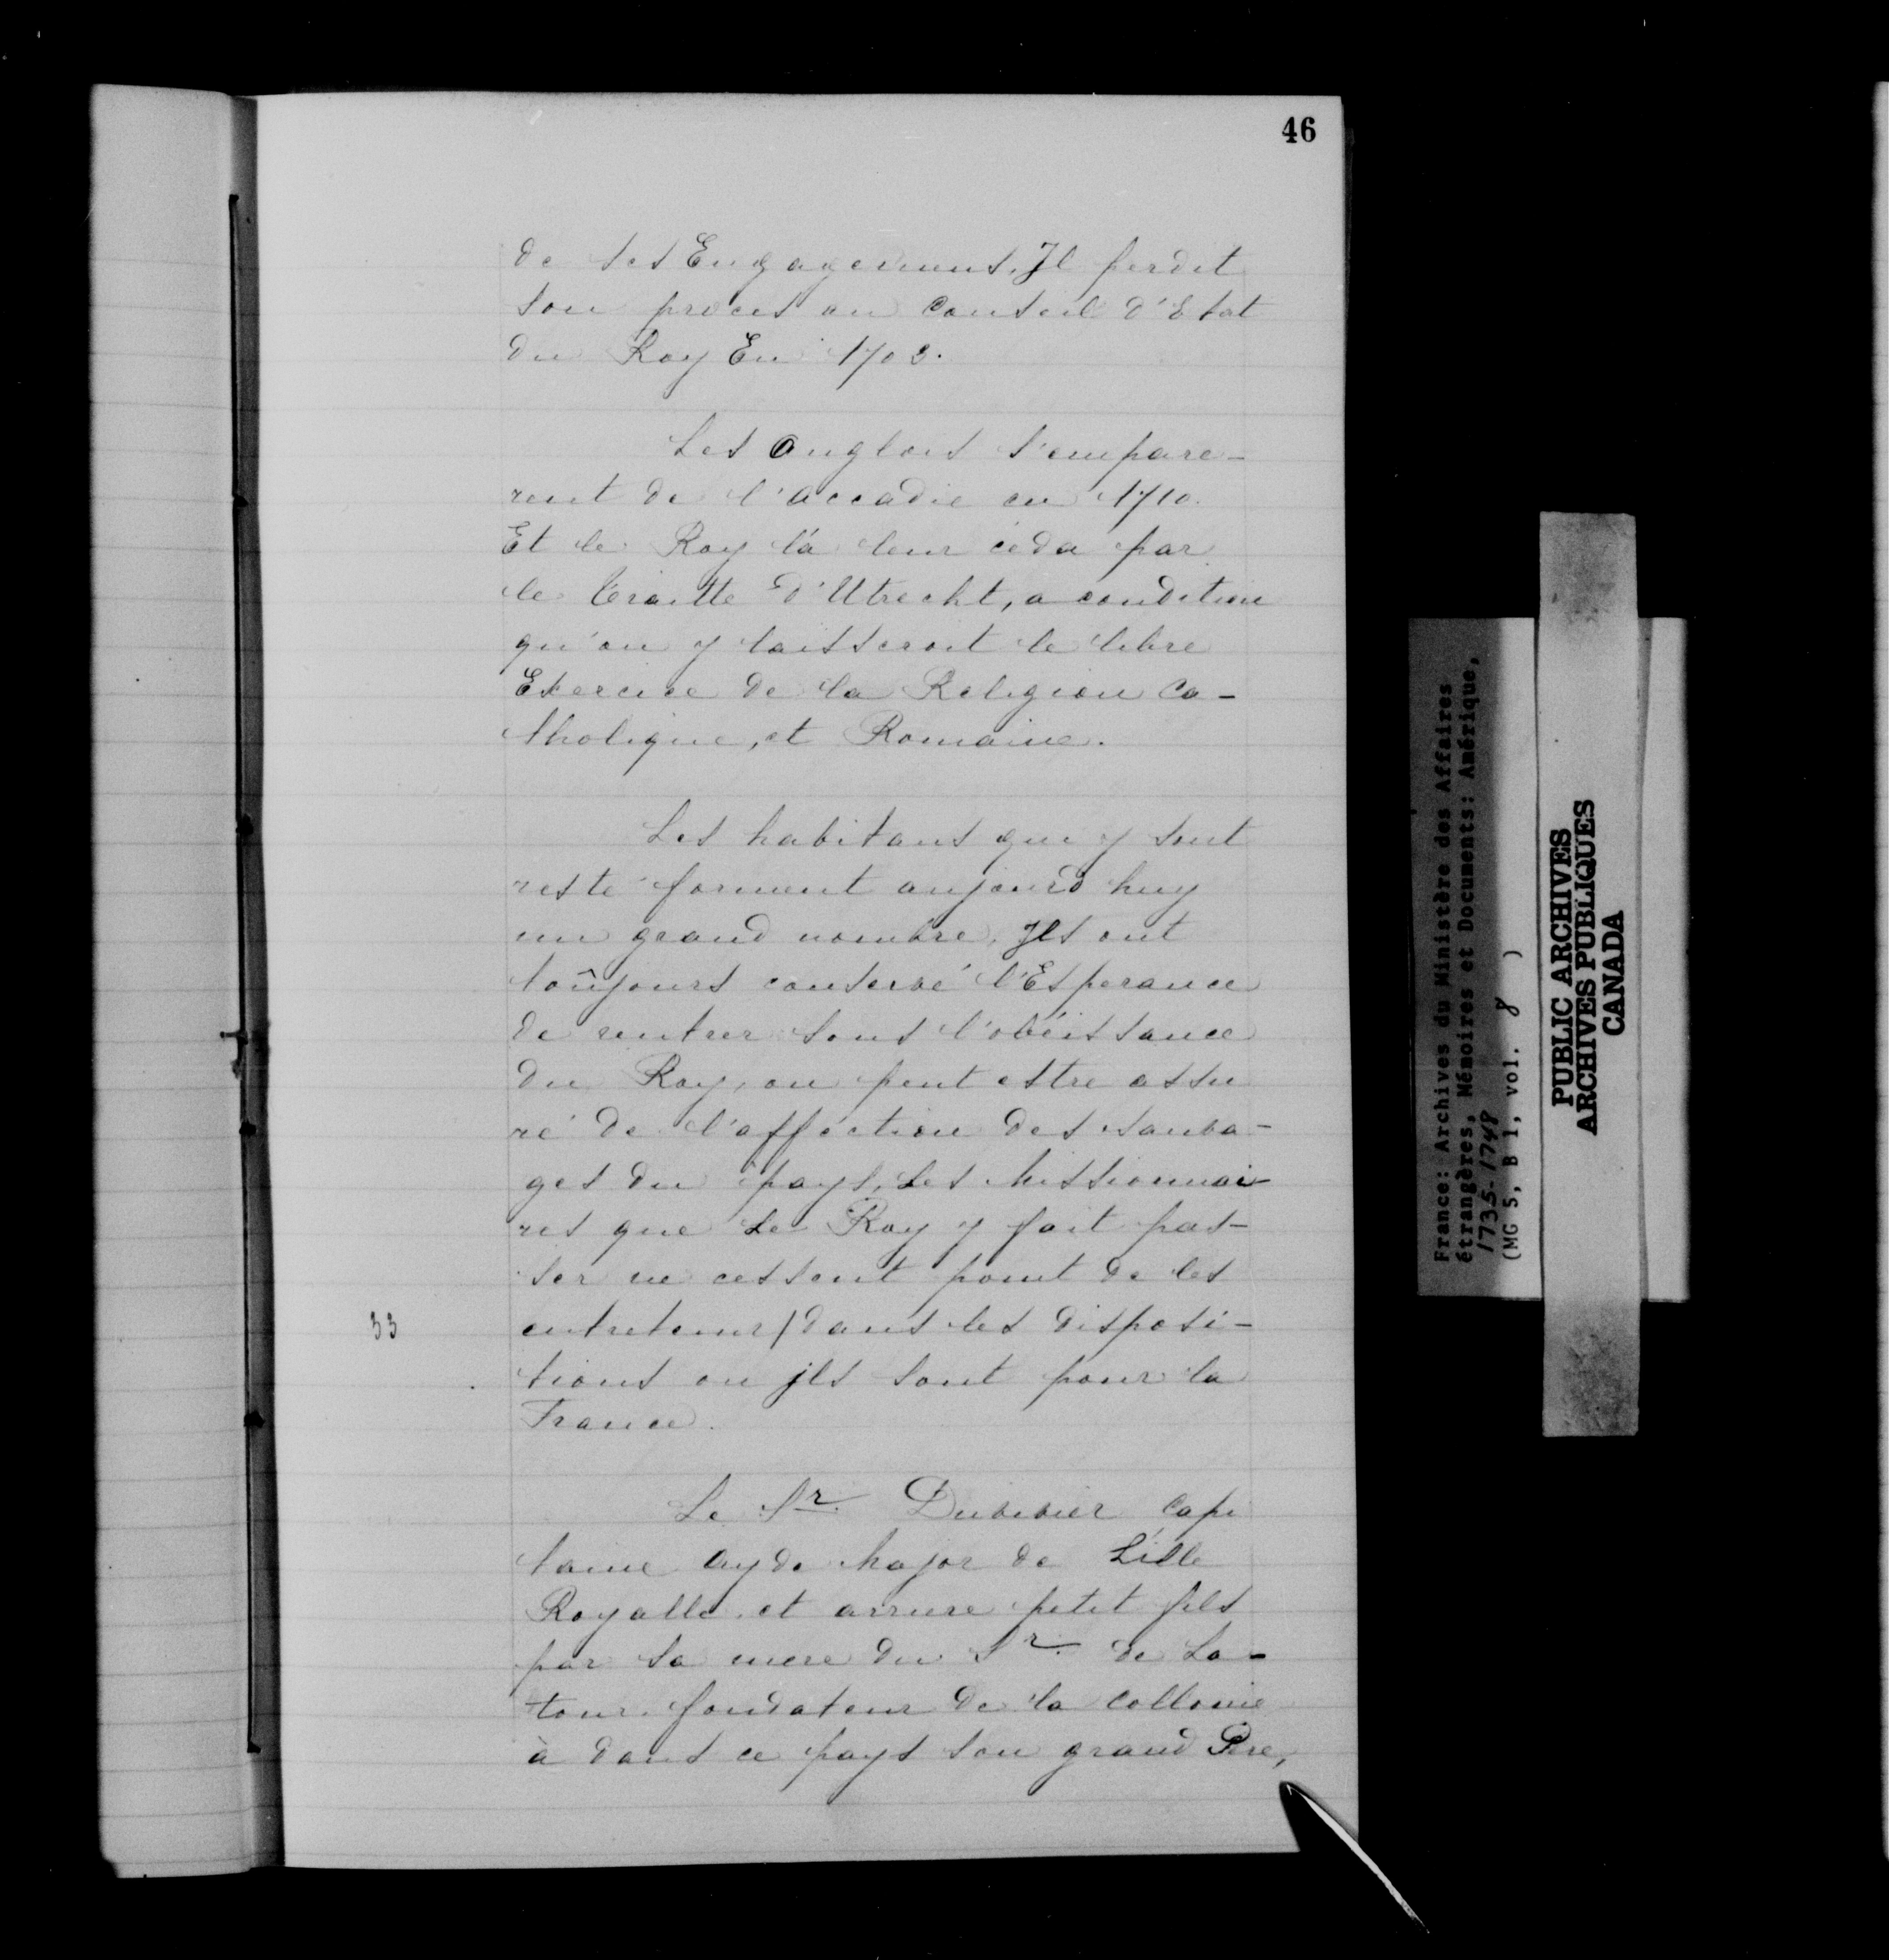 46
de ses Engagemens. Jl perdit
son procès au Conseil d'Etat
du Roy En 1703.
Les anglois s'empare-
rent de l'accadie en 1710.
Et le Roy la leur céda par
le Traitte d'Utrecht, a condition
qu'on y laisseroit le libre
Exercice de la Religion Ca-
tholique, et Romaine.
Les habitans qui y sont
resté forment aujourd huy
un grand nombre, Jls ont
toûjours conservé l'Esperance
de rentrer sous l'obéissance
du Roy, on peut estre assu
ré de l'affection des sauva-
ges du pays, Les Missionnai-
res que Le Roy y fait pas-
ser ne cessent point de les
33 entretenir / dans les disposi-
tions ou jls sont pour la
France.
Le Sr. Duvivier Capi
taine Ayde Major de L'isle
Royalle et arriere petit fils
par sa mere du Sr. de La-
tour fondateur de la Collonie
à dans ce pays son grand Pere,
France: Archives du Ministère des Affaires
étrangères, Mémoires et Documents: Amérique,
1735-1748
(MG 5, B 1, vol. 8 )
PUBLIC ARCHIVES
ARCHIVES PUBLIQUES
CANADA